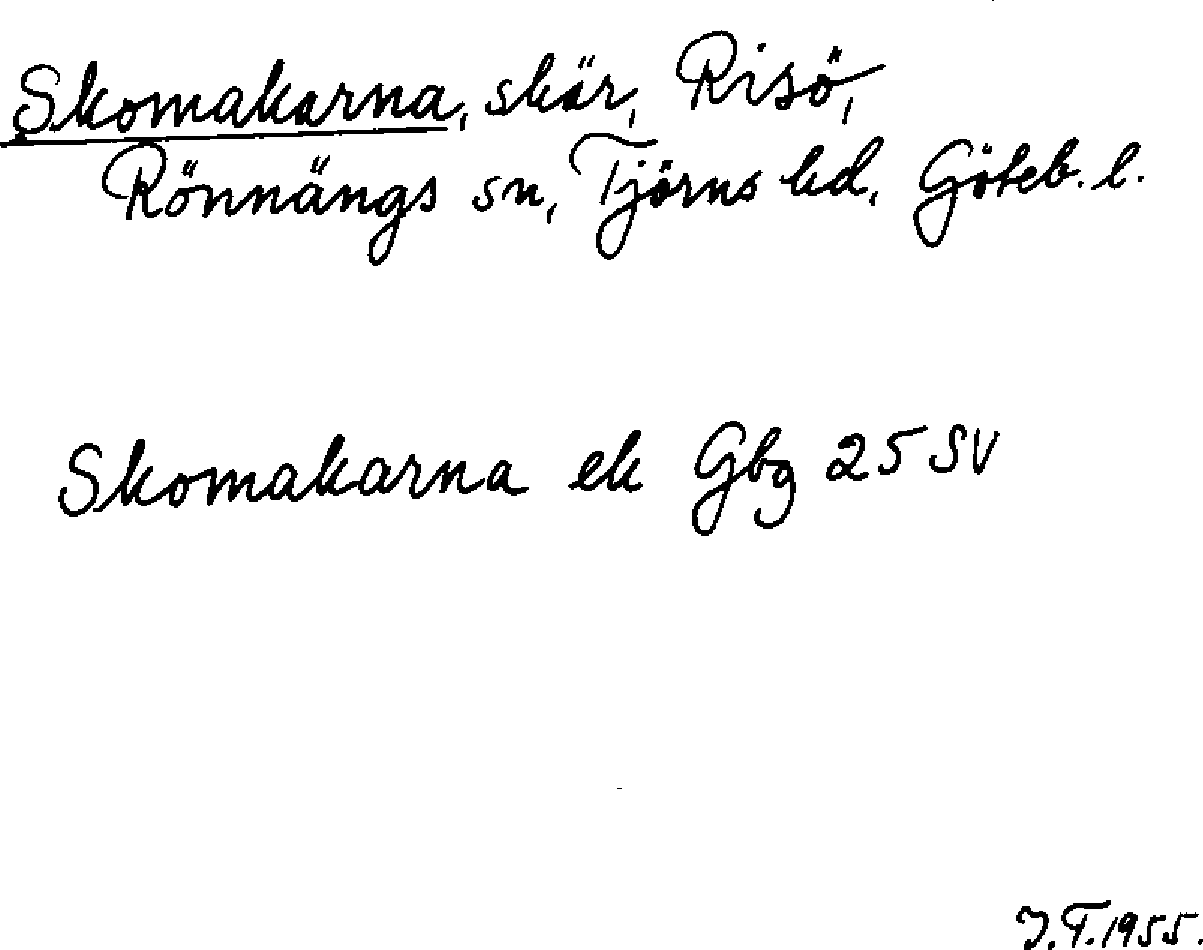 Skomakarna, skär, Risö,
Rönnängs sn, Tjörns hd, Göteb. l.
Skomakarna ek Gbg 25 SV
J.T. 1955.